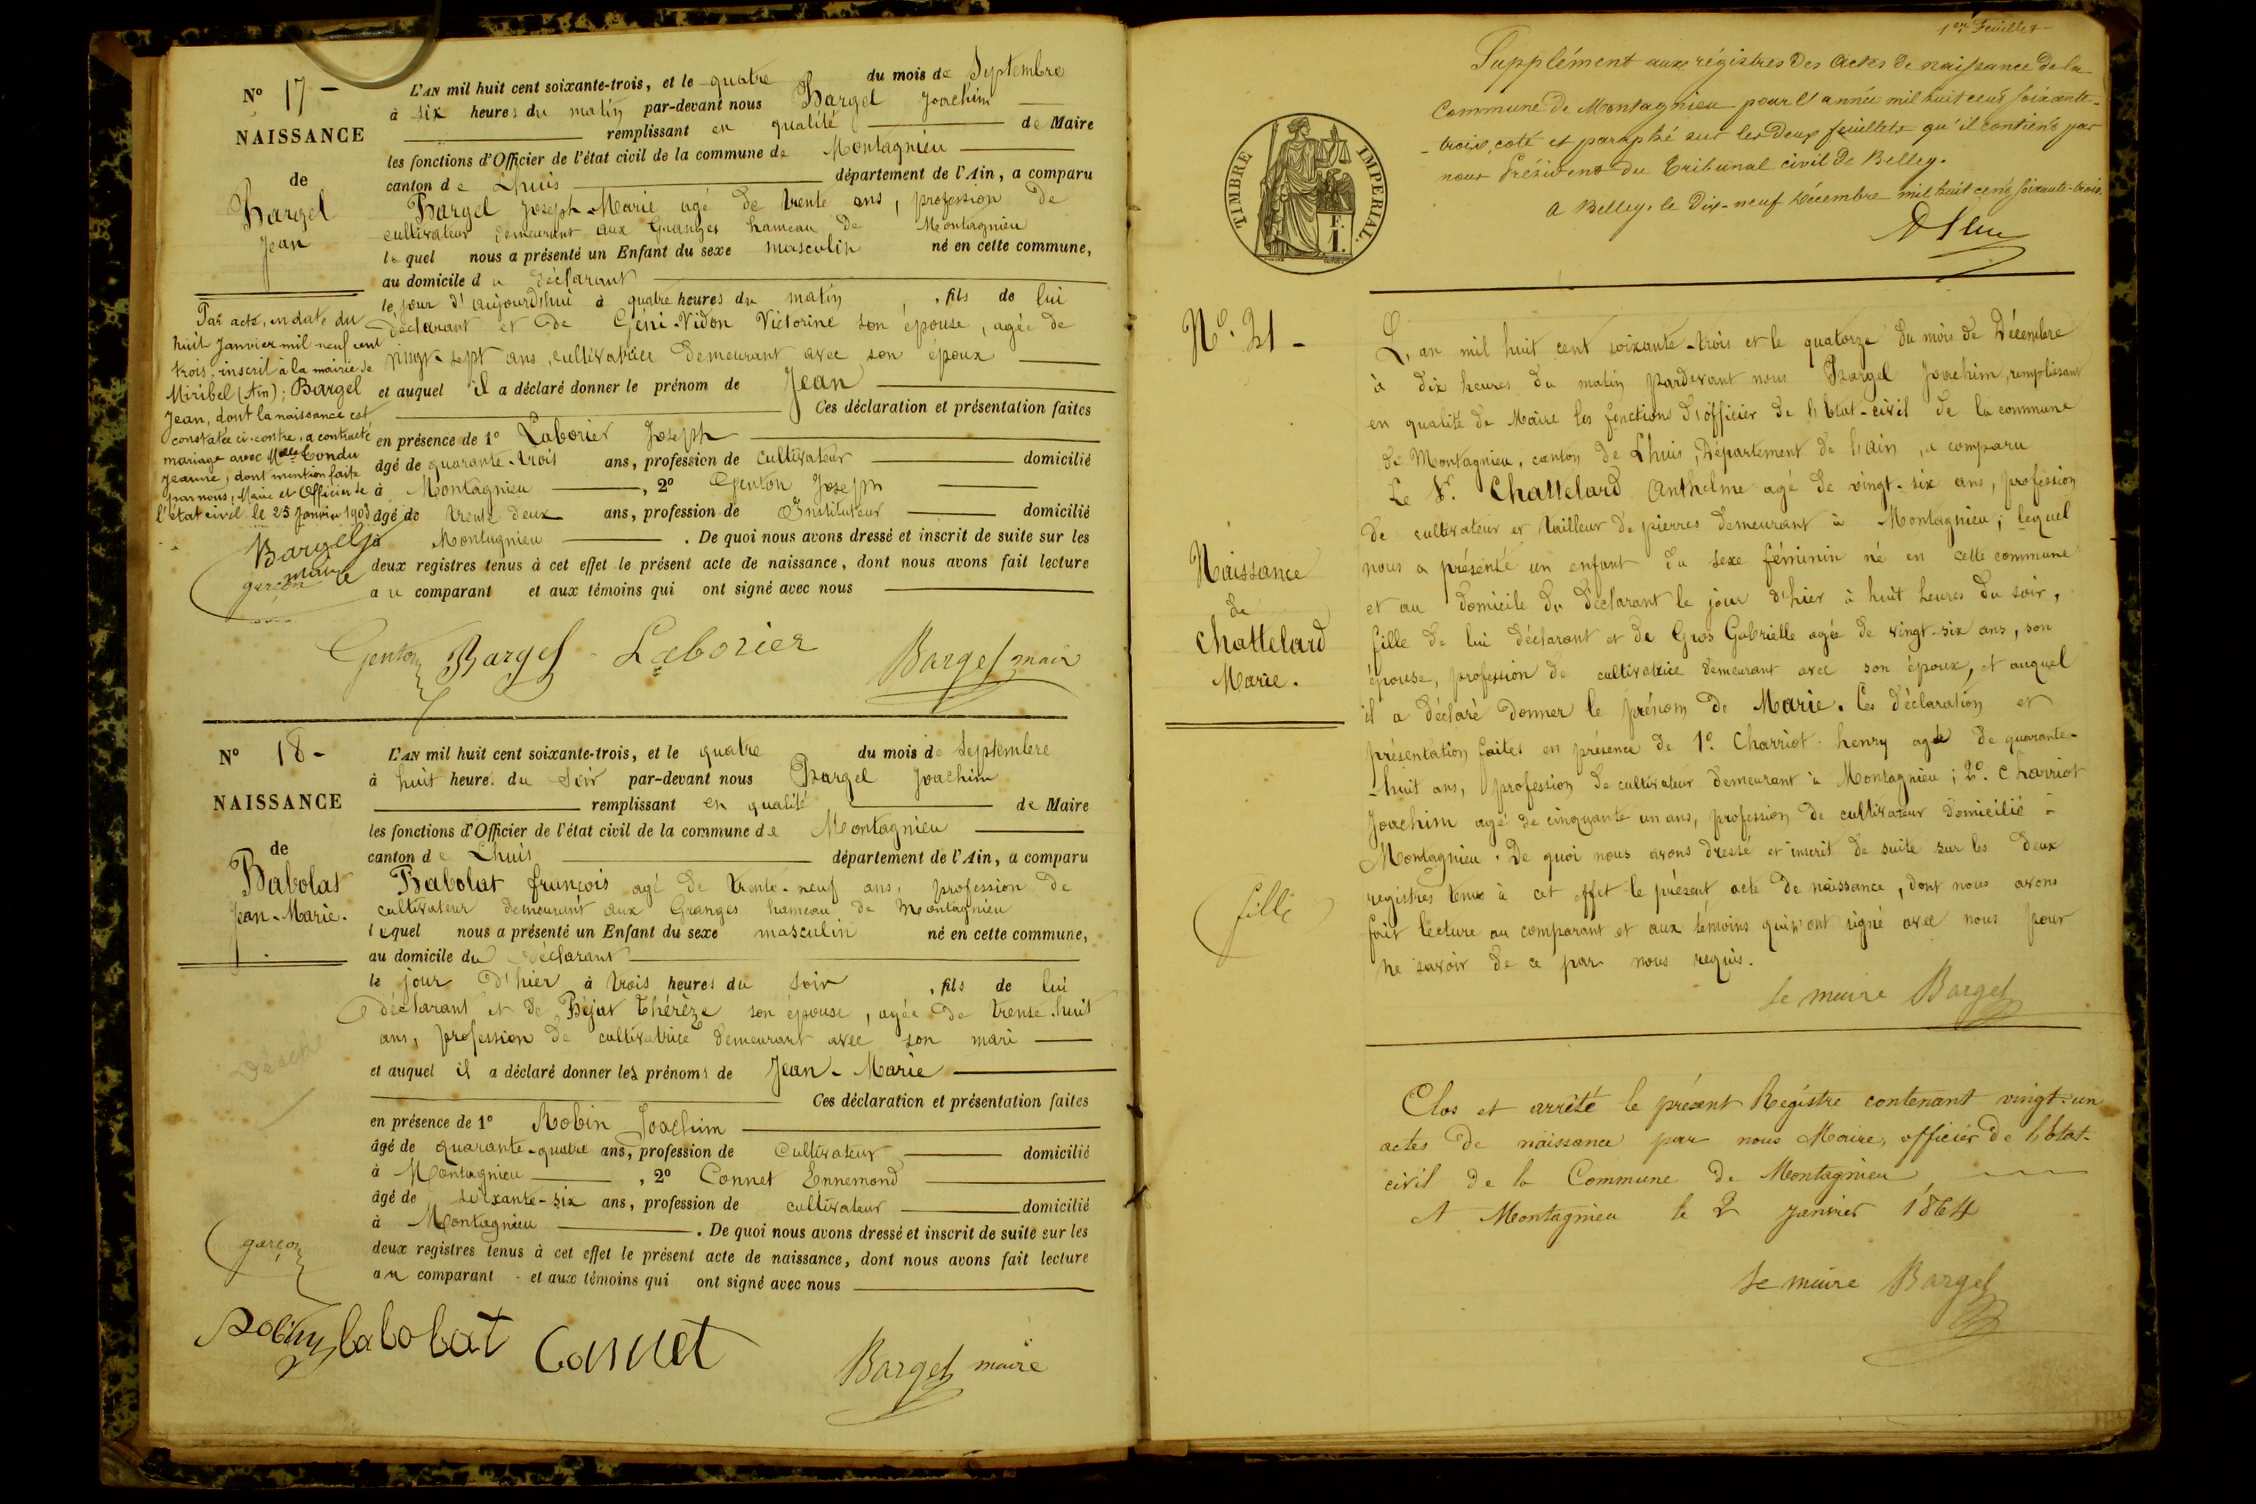 Nº 17 -
NAISSANCE
de
Bargel
Jean
L'AN mil huit cent soixante-trois, et le quatre du mois de Septembre
à six heures du matin par-devant nous Bargel Joachim
remplissant en qualité de Maire
les fonctions d'Officier de l'état civil de la commune de Montagnieu
canton de Lhuis département de l'Ain, a comparu
Bargel Joseph-Marie agé de trente ans, profession de
cultivateur demeurant aux Granges hameau de Montagnieu
lequel nous a présenté un Enfant du sexe masculin né en cette commune,
au domicile du déclarant
le jour d'aujourd'hui à quatre heures du matin, fils de lui
déclarant et de Géni-Vidon Victorine son épouse, agée de
vingt-sept ans, cultivatrice demeurant avec son époux
et auquel il a déclaré donner le prénom de Jean
Ces déclaration et présentation faites
en présence de 1º Laborier Joseph
âgé de quarante-trois ans, profession de cultivateur domicilié
à Montagnieu, 2º Genton Joseph
âgé de trente deux ans, profession de Instituteur domicilié
à Montagnieu. De quoi nous avons dressé et inscrit de suite sur les
deux registres tenus à cet effet le présent acte de naissance, dont nous avons fait lecture
au comparant et aux témoins qui ont signé avec nous
Par acte, en date du
huit Janvier mil neuf cent
trois, inscrit à la mairie de
Miribel (Ain); Bargel
Jean, dont la naissance est
constatée ci-contre, a contracté
mariage avec Melle Condu
Jeanne, dont mention faite
par nous, Maire et Officier de
l'état civil le 25 Janvier 1903
Bargel
maire
garçon
Genton Bargel Laborier Bargel maire
Nº 18 -
NAISSANCE
de
Babolat
Jean-Marie.
L'AN mil huit cent soixante-trois, et le quatre du mois de Septembre
à huit heure. du soir par-devant nous Bargel Joachim
remplissant en qualité de Maire
les fonctions d'Officier de l'état civil de la commune de Montagnieu
canton de Lhuis département de l'Ain, a comparu
Babolat françois agé de trente-neuf ans, profession de
cultivateur demeurant aux Granges hameau de Montagnieu
lequel nous a présenté un Enfant du sexe masculin né en cette commune,
au domicile du déclarant
le jour d'hier à trois heures du soir, fils de lui
déclarant et de Béjat Thérèze son épouse, agée de trente-huit
ans, profession de cultivatrice demeurant avec son mari
et auquel il a déclaré donner les prénoms de Jean-Marie
Ces déclaration et présentation faites
en présence de 1º Robin Joachim
âgé de quarante-quatre ans, profession de cultivateur domicilié
à Montagnieu, 2º Connet Ennemond
âgé de soixante-six ans, profession de cultivateur domicilié
à Montagnieu. De quoi nous avons dressé et inscrit de suite sur les
deux registres tenus à cet effet le présent acte de naissance, dont nous avons fait lecture
au comparant et aux témoins qui ont signé avec nous
garçon
Robin babolat Connet Bargel maire
1er Feuillet
Supplément aux régistres des Actes de naissance de la
Commune de Montagnieu pour l'année mil huit cent soixante-
-trois, coté et paraphé sur les deux feuillets qu'il contient par
nous Président du Tribunal civil de Belley.
A Belley, le Dix-neuf Décembre mil huit cent soixante-trois.
TIMBRE IMPERIAL.
F.
1.
Nº. 21 -
Naissance
de
Chattelard
Marie.
fille
L'an mil huit cent soixante-trois et le quatorze du mois de Décembre
à dix heures du matin pardevant nous Bargel Joachim, remplissant
en qualité de Maire les fonctions d'officier de l'Etat-civil de la commune
de Montagnieu, canton de Lhuis, Département de l'ain, a comparu
Le Sr. Chattelard Anthelme agé de vingt-six ans, profession
de cultivateur et tailleur de pierres demeurant à Montagnieu; lequel
nous a présenté un enfant du sexe féminin né en cette commune
et au domicile du déclarant le jour d'hier à huit heures du soir,
fille de lui déclarant et de Gros Gabrielle agée de vingt-six ans, son
épouse, profession de cultivatrice demeurant avec son époux, et auquel
il a déclaré donner le prénom de Marie. Ces déclaration et
présentation faites en présence de 1º. Charriot henry agé de quarante-
-huit ans, profession de cultivateur demeurant à Montagnieu; 2º. Charriot
Joachim agé de cinquante un ans, profession de cultivateur domicilié à
Montagnieu. De quoi nous avons dressé et inscrit de suite sur les deux
registres tenus à cet effet le présent acte de naissance, dont nous avons
fait lecture au comparant et aux témoins qui n'ont signé avec nous pour
ne savoir de ce par nous requis.
Le maire Bargel
Clos et arrêté le présent Régistre contenant vingt-un
actes de naissance par nous Maire, officier de l'Etat-
civil de la Commune de Montagnieu
A Montagnieu le 2 Janvier 1864
Le maire Bargel